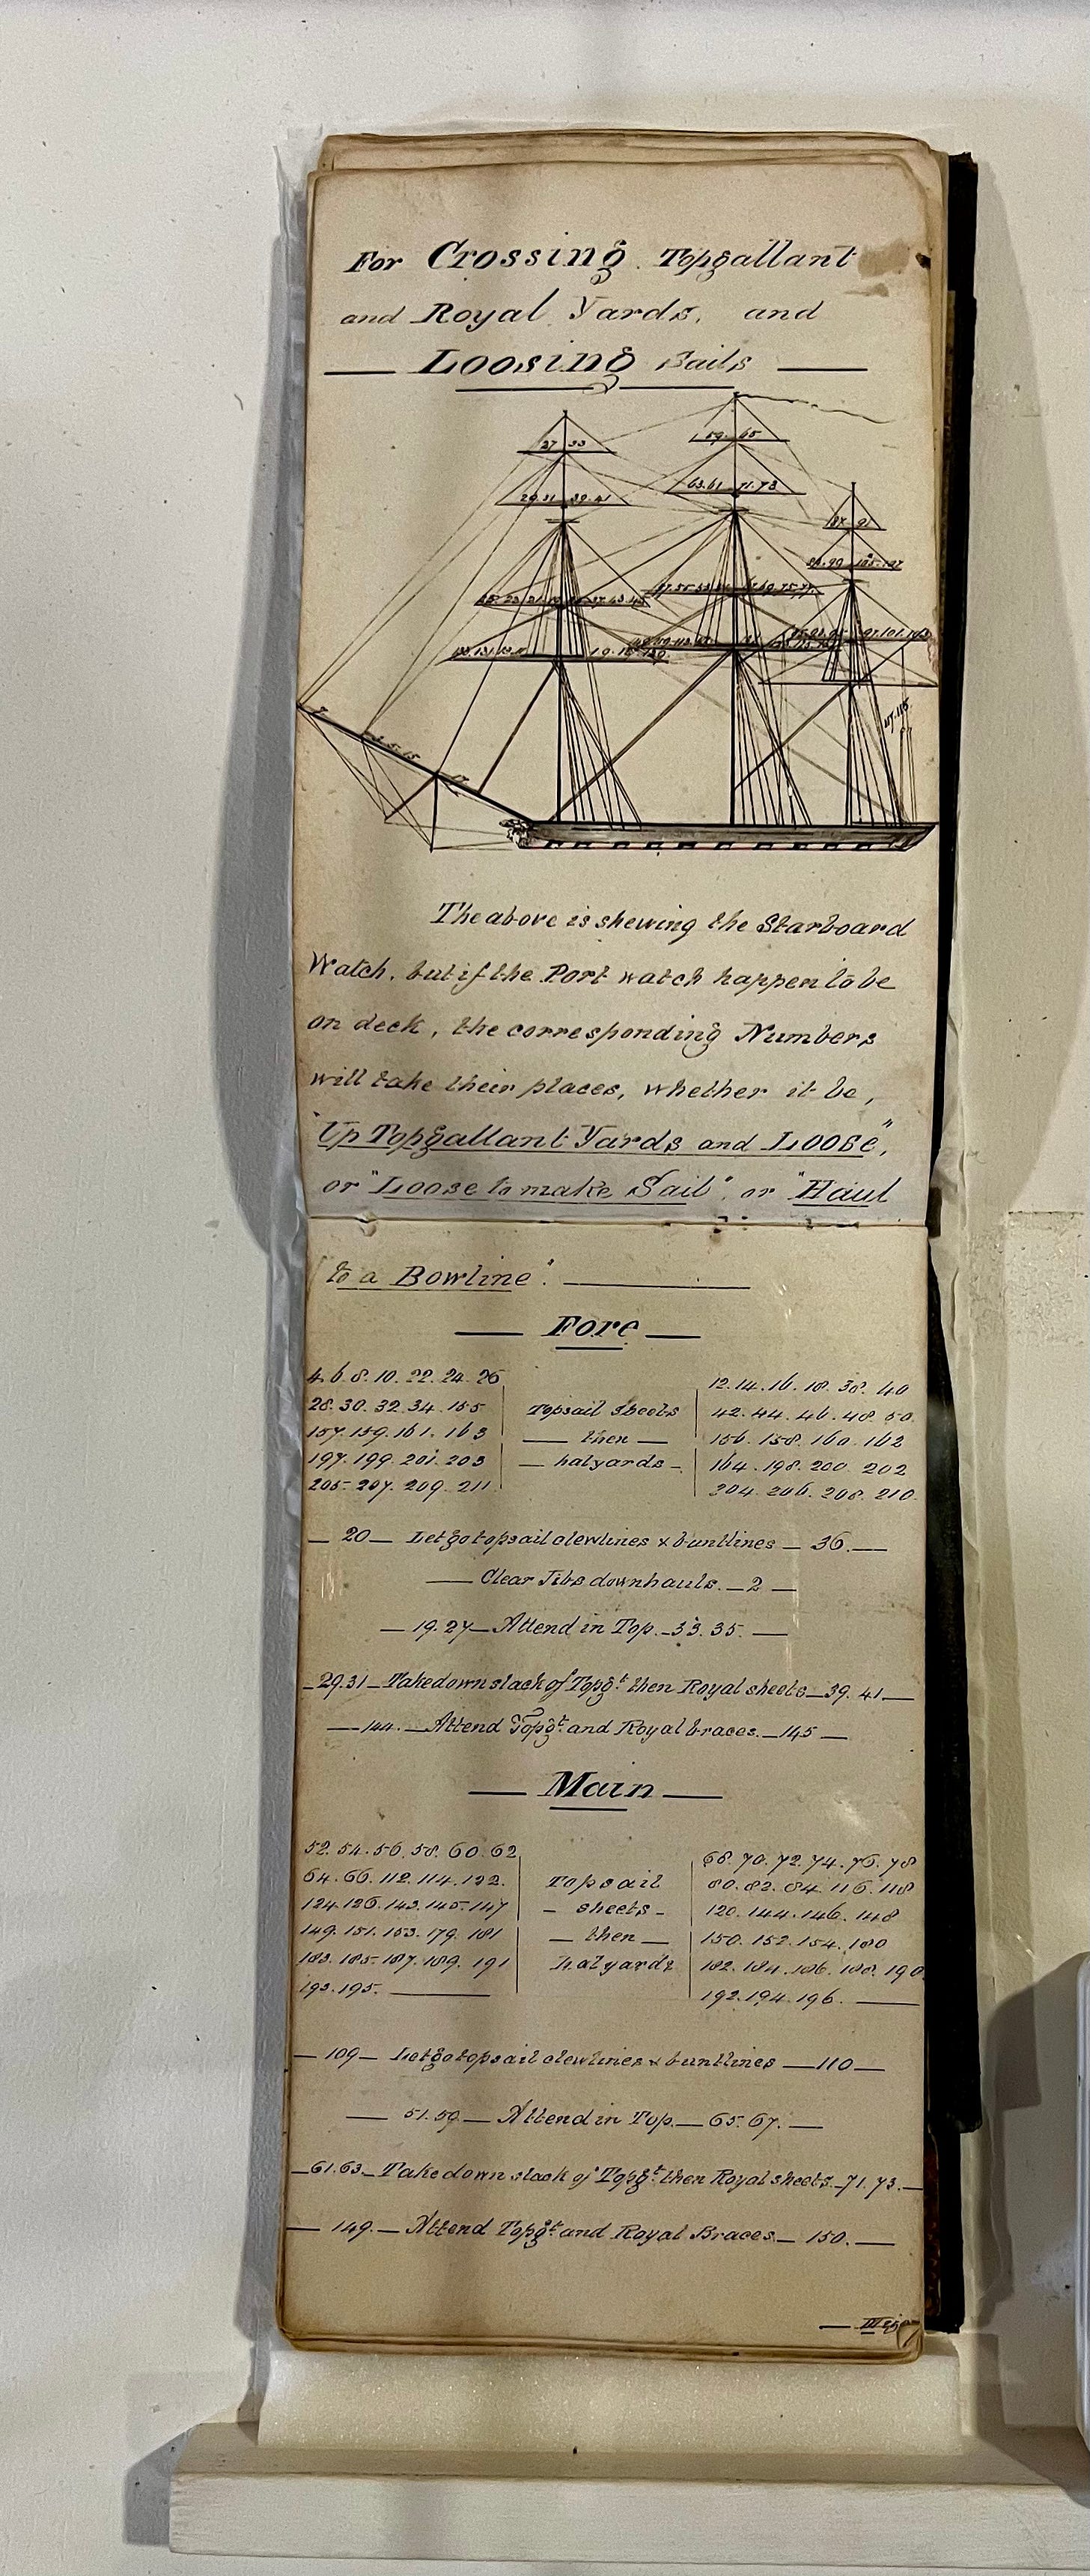 For Crossing Topgallant
and Royal Yards, and
Loosing Sails
27 33
59 65
29.31 39.41
63.61 71.73
The above is shewing the Starboard
Watch, but if the Port watch happen to be
on deck, the corresponding Numbers
will take their places, whether it be,
"Up Topgallant Yards and Loose",
or "Loose to make Sail", or "Haul
to a Bowline".
Fore
4. 6. 8. 10. 22. 24. 26 12. 14. 16. 18. 38. 40
28. 30. 32. 34. 155 Topsail Sheets 42. 44. 46. 48. 50
157. 159. 161. 163 then 156. 158. 160. 162
197. 199. 201. 203 halyards 164. 198. 200. 202
205. 207. 209. 211 204. 206. 208. 210
20 Let go topsail clewlines & buntlines 36.
Clear Jibs downhauls. 2
19. 27 Attend in Top. 33. 35.
29.31 Take down slack of Topgt. then Royal sheets 39. 41
144. Attend Topgt. and Royal braces. 145
Main
52. 54. 56. 58. 60. 62 68. 70. 72. 74. 76. 78
64. 66. 112. 114. 122. Topsail 80. 82. 84. 116. 118
124. 126. 143. 145. 147 sheets 120. 144. 146. 148
149. 151. 153. 179. 181 then 150. 152. 154. 180
183. 185. 187. 189. 191 halyards 182. 184. 186. 188. 190
193. 195. 192. 194. 196.
109 Let go topsail clewlines & buntlines 110
51. 59. Attend in Top. 65. 67.
61. 63. Take down slack of Topgt. then Royal sheets. 71. 73.
149. Attend Topgt. and Royal Braces 150.